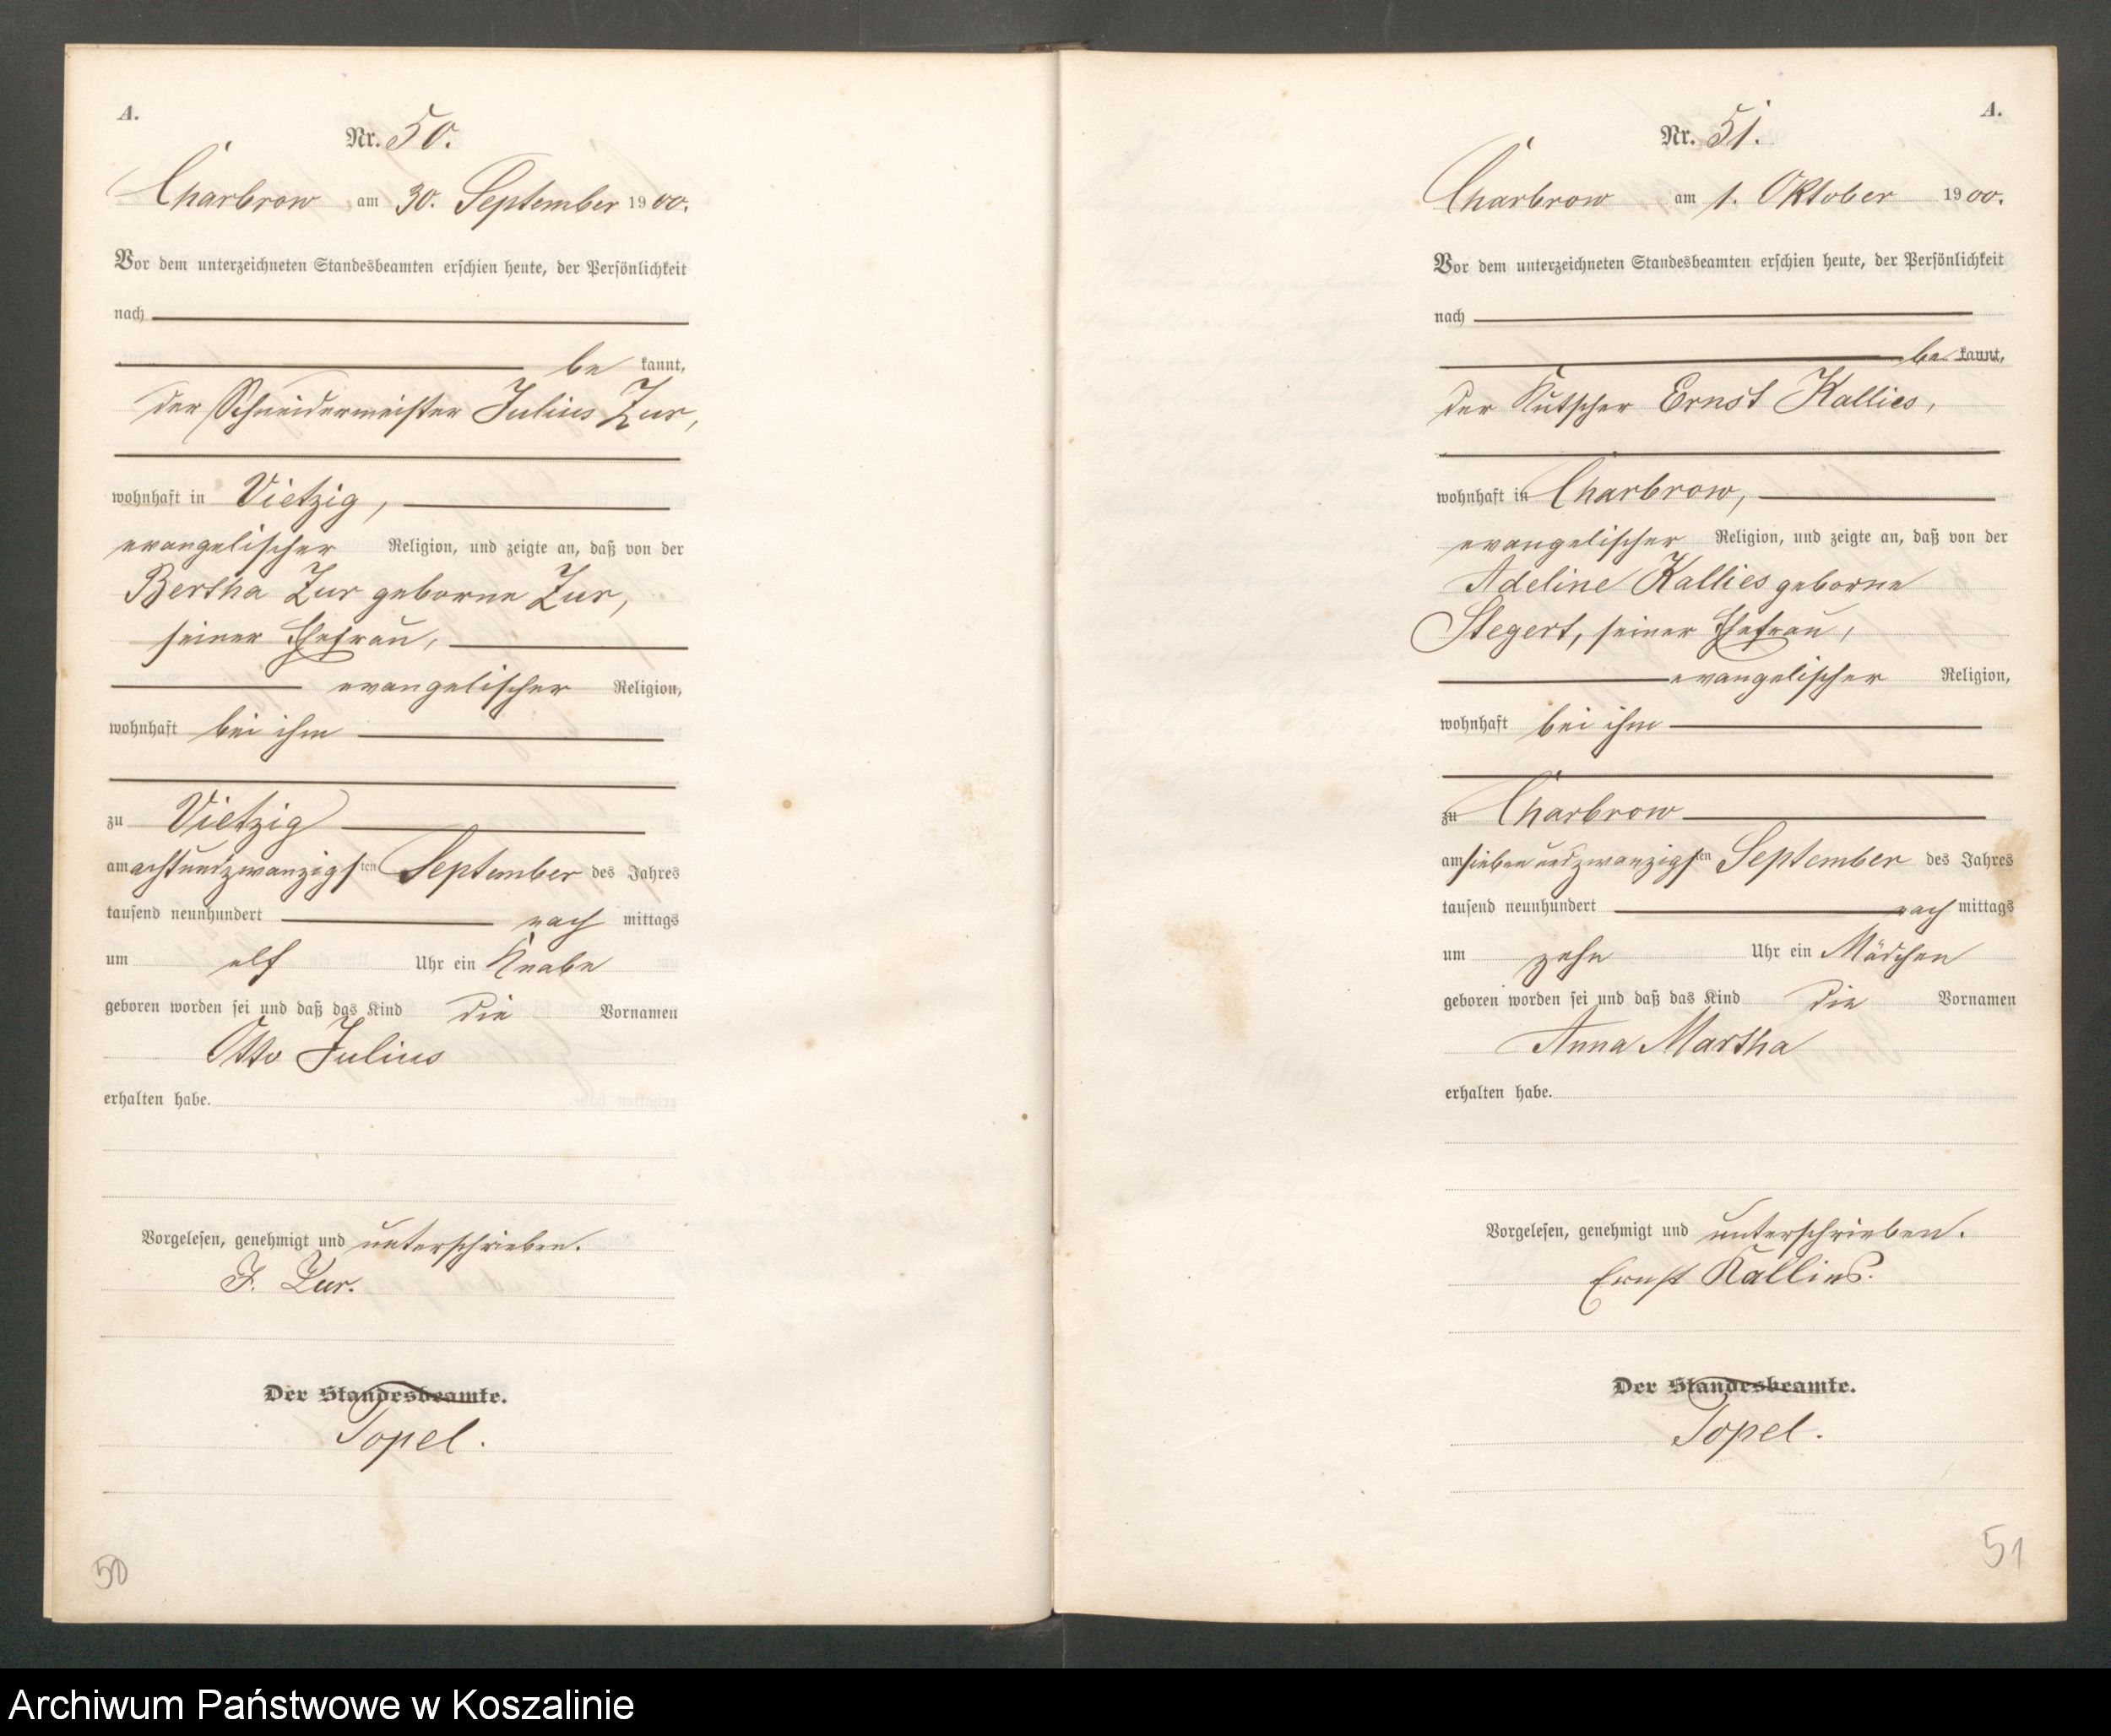 A.
Nr. 50.
Charbrow am 30. September 1900.
Vor dem unterzeichneten Standesbeamten erschien heute, der Persönlichkeit
nach
be kannt,
der Schneidermeister Julius Zur,
wohnhaft in Vietzig,
evangelischer Religion, und zeigte an, daß von der
Bertha Zur geborne Zur,
seiner Ehefrau,
evangelischer Religion,
wohnhaft bei ihm
zu Vietzig
am achtundzwanzigsten September des Jahres
tausend neunhundert nach mittags
um elf Uhr ein Knabe
geboren worden sei und daß das Kind die Vornamen
Otto Julius
erhalten habe.
Vorgelesen, genehmigt und unterschrieben.
J. Zur.
Der Standesbeamte.
Topel.
50
A.
Nr. 51.
Charbrow am 1. Oktober 1900.
Vor dem unterzeichneten Standesbeamten erschien heute, der Persönlichkeit
nach
be kannt,
der Kutscher Ernst Kallies,
wohnhaft in Charbrow,
evangelischer Religion, und zeigte an, daß von der
Adeline Kallies geborne
Stegert, seiner Ehefrau,
evangelischer Religion,
wohnhaft bei ihm
zu Charbrow
am siebenundzwanzigsten September des Jahres
tausend neunhundert nach mittags
um zehn Uhr ein Mädchen
geboren worden sei und daß das Kind die Vornamen
Anna Martha
erhalten habe.
Vorgelesen, genehmigt und unterschrieben.
Ernst Kallies.
Der Standesbeamte.
Topel.
51
Archiwum Państwowe w Koszalinie